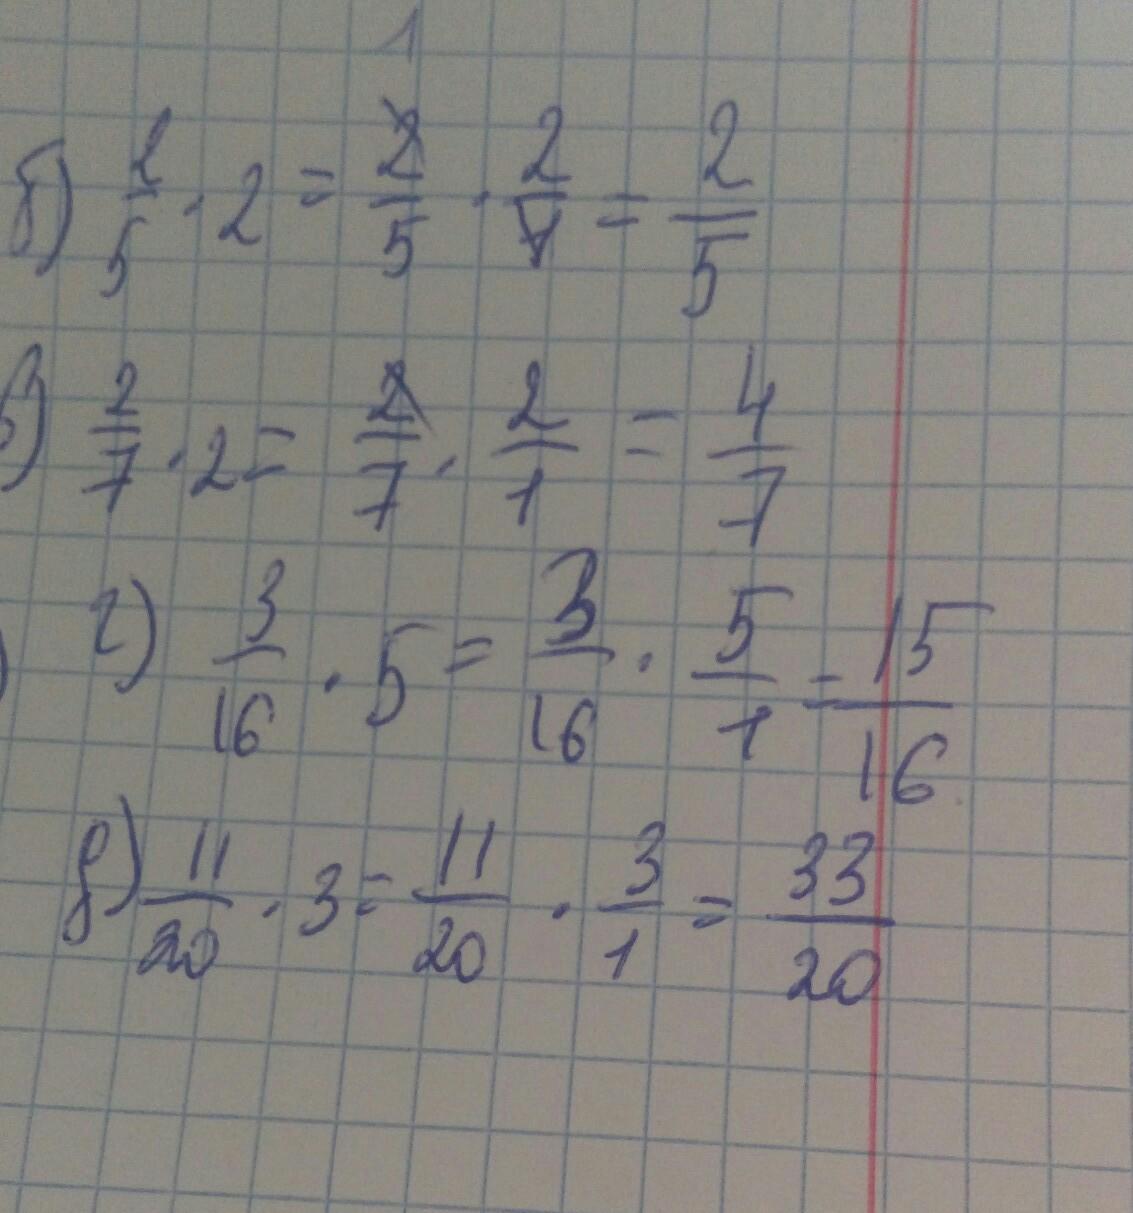 1
б) 2/5 · 2 = 2/5 · 2/1 = 2/5
в) 2/7 · 2 = 2/7 · 2/1 = 4/7
г) 3/16 · 5 = 3/16 · 5/1 = 15/16
д) 11/20 · 3 = 11/20 · 3/1 = 33/20